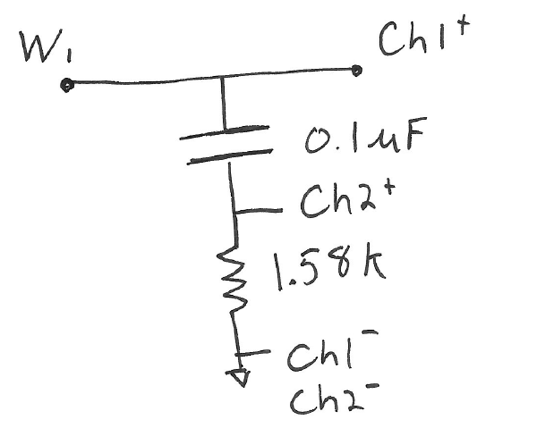 W₁
Ch1⁺
0.1µF
Ch2⁺
1.58k
Ch1⁻
Ch2⁻